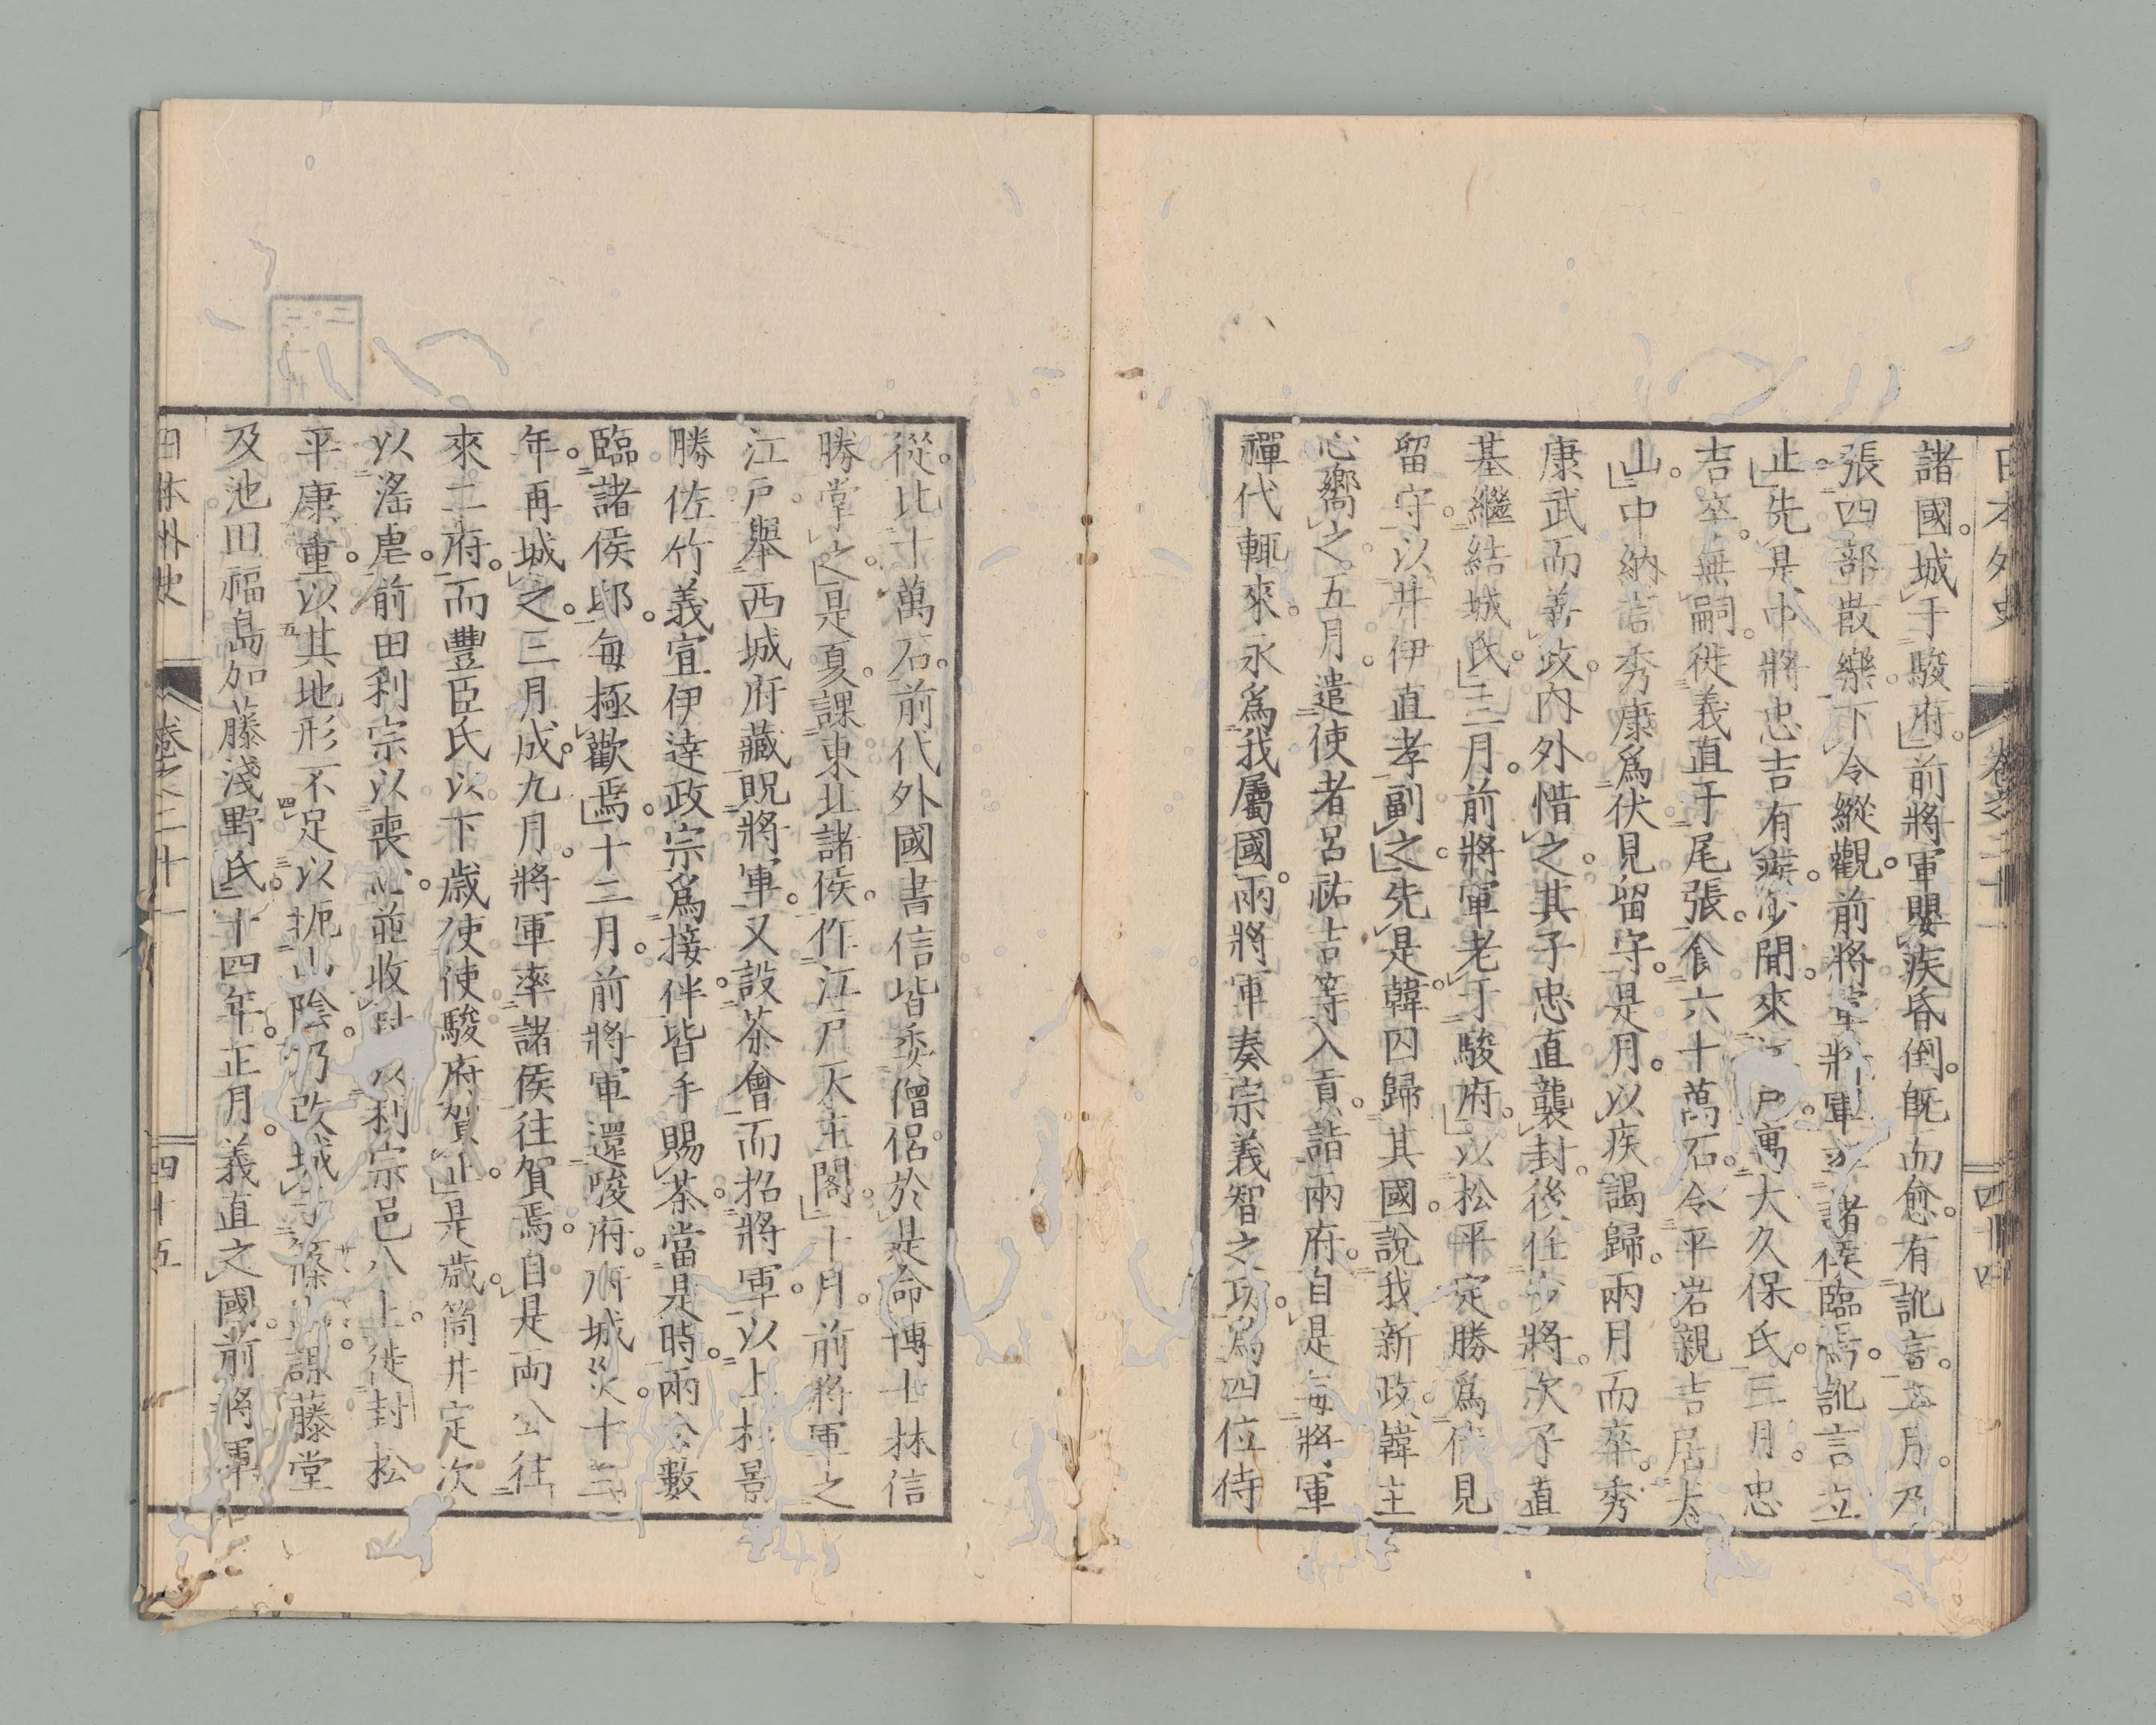 日本外史 卷之二十一 四十四
諸國。城于駿府。前將軍嬰疾昏倒。既而愈。有訛言。二月。乃
張四部散樂。下令縱觀。前將軍將軍諸侯臨焉。訛言立
止。先是。中將忠吉有疾。少間。來江戶。寓大久保氏。三月。忠
吉卒。無嗣。徙義直于尾張。食六十萬石。令平岩親吉居犬
山。中納言秀康爲伏見留守。是月。以疾謁歸。兩月而卒。秀
康武而善政。內外惜之。其子忠直襲封。後任少將。次子直
基繼結城氏。三月。前將軍老于駿府。以松平定勝爲伏見
留守。以井伊直孝副之。先是。韓囚歸其國。說我新政。韓主
心嚮之。五月。遣使者呂祐吉等入貢。詣兩府。自是每將軍
禪代輒來。永爲我屬國。兩將軍奏宗義智之功。爲四位侍
從。比十萬石。前代外國書信皆委僧侶。於是命博士林信
勝掌之。是夏。課東北諸侯。作江戶天主閣。十月。前將軍之
江戶。擧西城府藏貺將軍。又設茶會。而招將軍。以上杉景
勝佐竹義宣伊達政宗爲接伴。皆手賜茶。當是時。兩公數
臨諸侯邸。每極歡焉。十二月。前將軍還駿府。府城災。十三
年。再城之。三月成。九月。將軍率諸侯往賀焉。自是兩公往
來二府。而豐臣氏以下歲使使駿府賀正。是歲。筒井定次
以淫虐。前田利宗以喪心。並收封。以利宗邑八上徙封松
平康重。以其地形不足以扼山陰。乃改城于篠山。課藤堂
及池田福島加藤淺野氏。十四年。正月。義直之國。前將軍
日本外史 卷之二十一 四十五